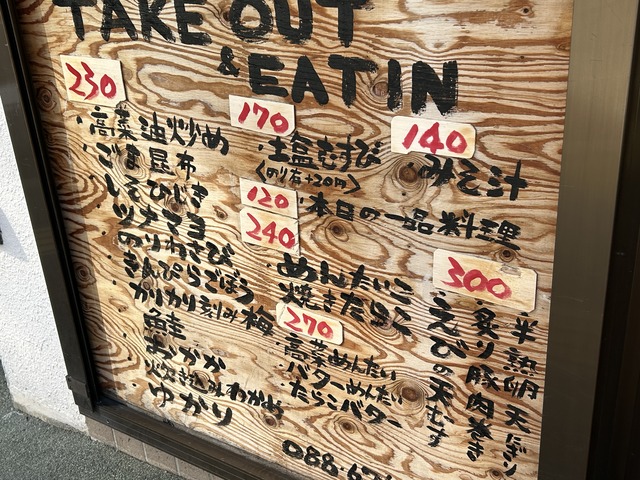 TAKE OUT
& EAT IN
230
・高菜油炒め
・ごま昆布
・しそひじき
・ツナマヨ
・のりわさび
・きんぴらごぼう
・カリカリ刻み梅
・鮭
・おかか
わかめ
・ゆかり
170
・塩むすび
(のり有+20円)
120
・本日の一品料理
240
・めんたいこ
・焼きたらこ
270
・高菜めんたい
・バターめんたい
・たらこバター
140
・みそ汁
300
・半熟卵天
・炙り豚肉巻き
・えびの天むす
088-67